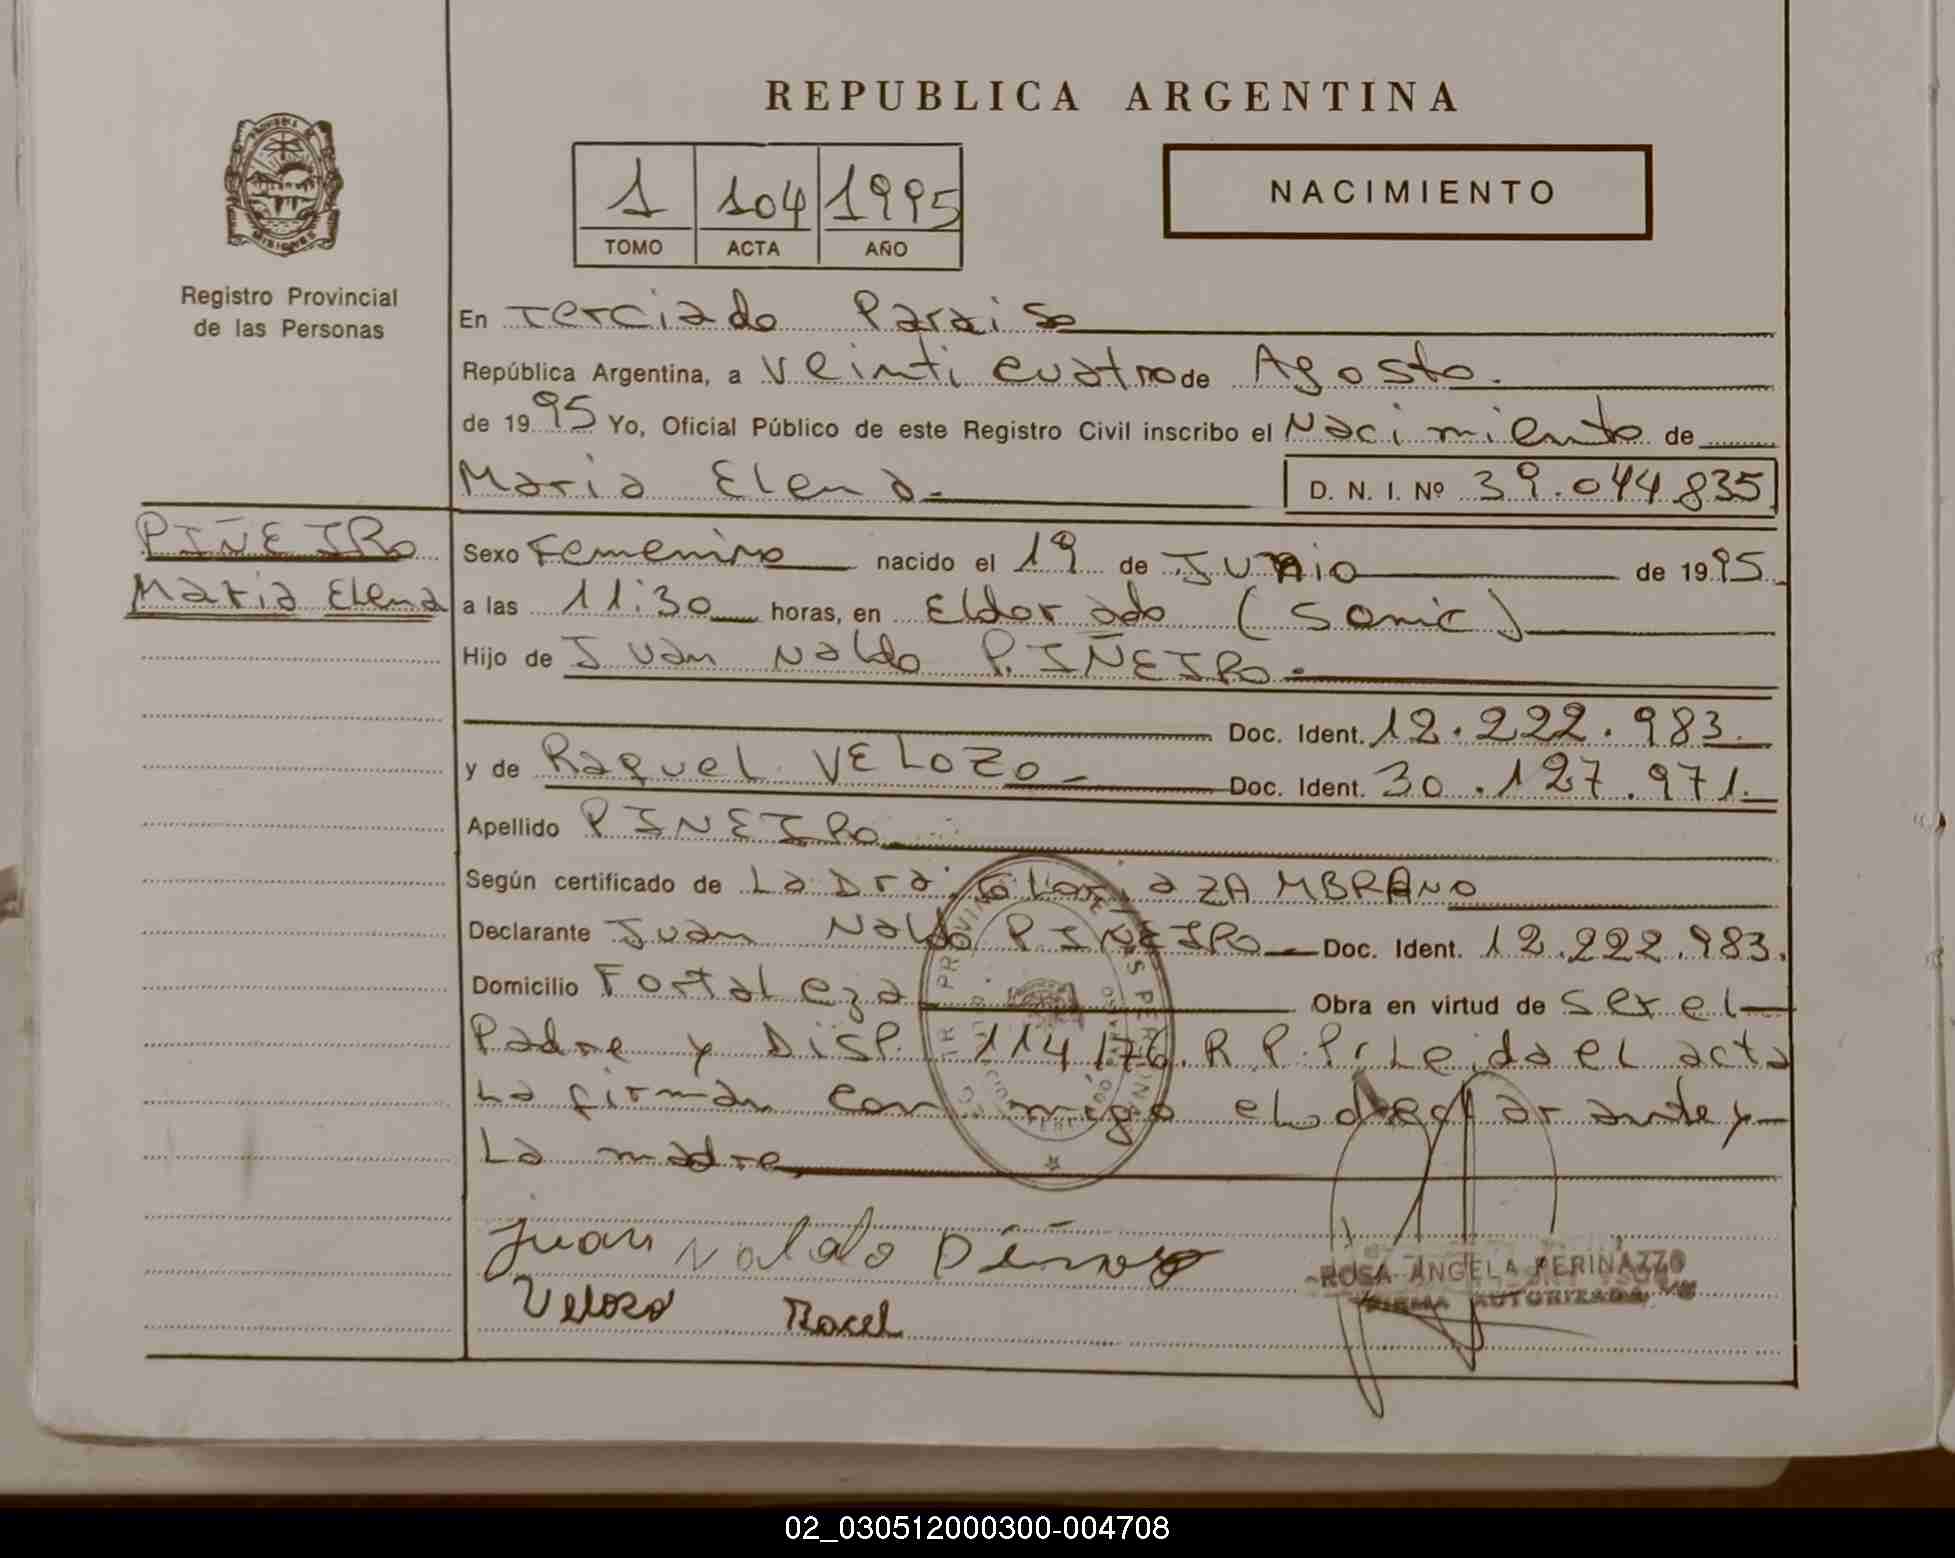 REPUBLICA ARGENTINA
PROVINCIA DE
MISIONES
Registro Provincial
de las Personas
1 104 1995
TOMO ACTA AÑO
NACIMIENTO
En Terciado Paraiso
República Argentina, a Veinti cuatro de Agosto.
de 1995 Yo, Oficial Público de este Registro Civil inscribo el Nacimiento de
Maria Elena.- D. N. I. Nº 39.044.835
PIÑEIRO
Maria Elena
Sexo Femenino nacido el 19 de Junio de 1995.
a las 11:30 horas, en Eldorado (Samic)
Hijo de Juan Naldo PIÑEIRO.-
Doc. Ident. 12.222.983.
y de Raquel VELOZO.- Doc. Ident. 30.127.971.
Apellido PIÑEIRO
Según certificado de La Dra. Gloria ZAMBRANO
Declarante Juan Naldo PIÑEIRO Doc. Ident. 12.222.983.
Domicilio Fortaleza Obra en virtud de ser el
Padre y Disp. 114/76. R.P.P. Leida el acta
La firman conmigo el declarante y
La madre
Juan Naldo Piñeiro
Velozo Racel
ROSA ANGELA PERINAZZO
FIRMA AUTORIZADA
02_030512000300-004708